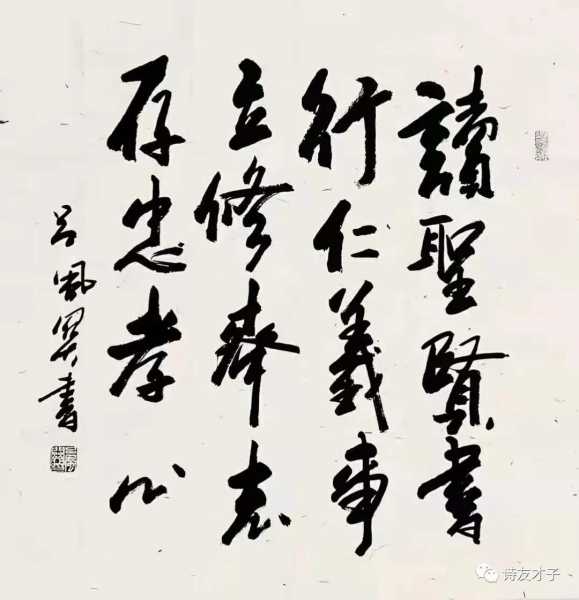 讀聖賢書
行仁義事
立修齊志
存忠孝心
呂 書
诗友才子